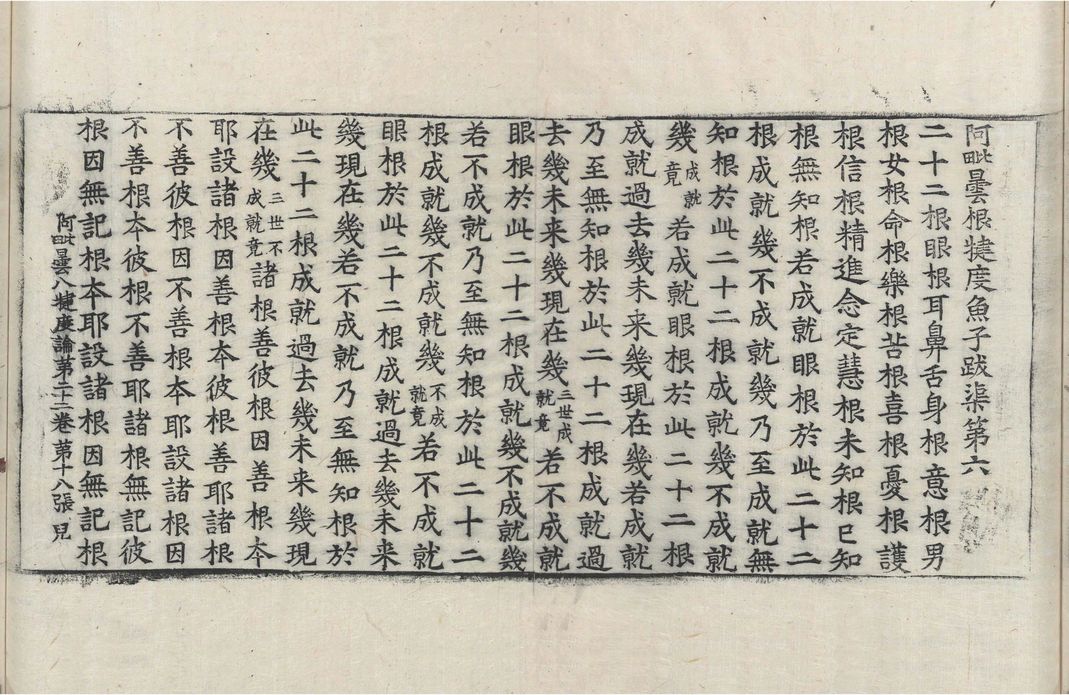 阿毗曇根犍度魚子跋渠第六
二十二根眼根耳鼻舌身根意根男
根女根命根樂根苦根喜根憂根護
根信根精進念定慧根未知根已知
根無知根若成就眼根於此二十二
根成就幾不成就幾乃至成就無
知根於此二十二根成就幾不成就
幾成就竟若成就眼根於此二十二根
成就過去幾未来幾現在幾若成就
乃至無知根於此二十二根成就過
去幾未来幾現在幾三世成就竟若不成就
眼根於此二十二根成就幾不成就幾
若不成就乃至無知根於此二十二
根成就幾不成就幾不成就竟若不成就
眼根於此二十二根成就過去幾未来
幾現在幾若不成就乃至無知根於
此二十二根成就過去幾未来幾現
在幾三世不成就竟諸根善彼根因善根本
耶設諸根因善根本彼根善耶諸根
不善彼根因不善根本耶設諸根因
不善根本彼根不善耶諸根無記彼
根因無記根本耶設諸根因無記根
阿毗曇八犍度論第二十一卷 第十八張 見